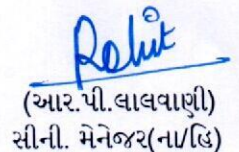 Rohit
(આર.પી.લાલવાણી)
સીની. મેનેજર(ના/હિ)